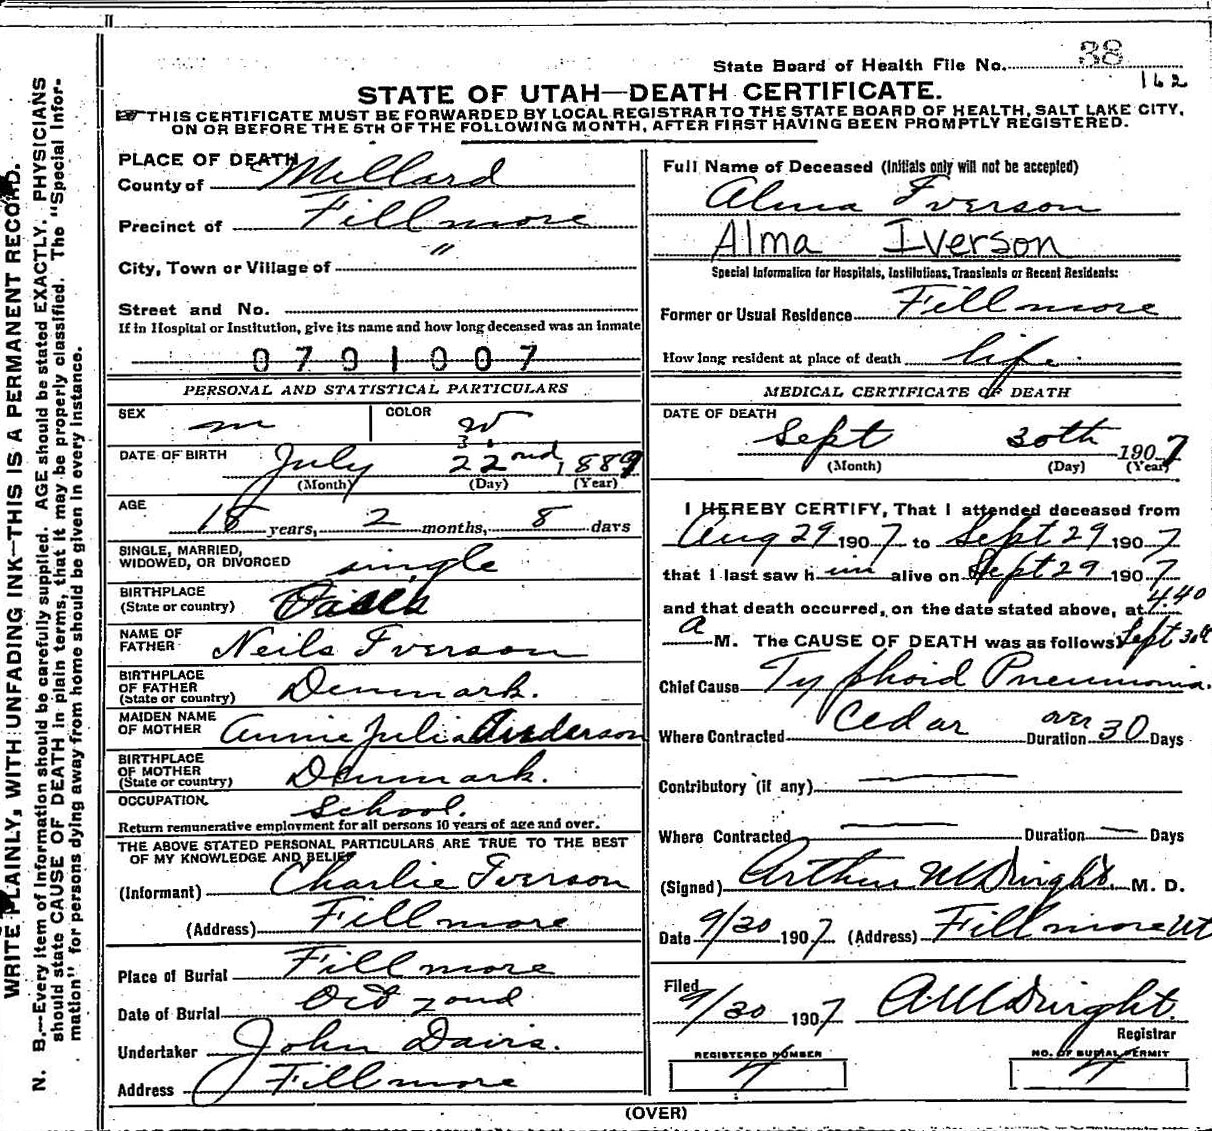 State Board of Health File No. 38
162
STATE OF UTAH—DEATH CERTIFICATE.
THIS CERTIFICATE MUST BE FORWARDED BY LOCAL REGISTRAR TO THE STATE BOARD OF HEALTH, SALT LAKE CITY,
ON OR BEFORE THE 5TH OF THE FOLLOWING MONTH, AFTER FIRST HAVING BEEN PROMPTLY REGISTERED.
WRITE PLAINLY, WITH UNFADING INK—THIS IS A PERMANENT RECORD.
N. B.—Every item of information should be carefully supplied. AGE should be stated EXACTLY. PHYSICIANS
should state CAUSE OF DEATH in plain terms, that it may be properly classified. The "Special Infor-
mation" for persons dying away from home should be given in every instance.
PLACE OF DEATH
County of Millard
Precinct of Fillmore
City, Town or Village of "
Street and No.
If in Hospital or Institution, give its name and how long deceased was an inmate
0701007
PERSONAL AND STATISTICAL PARTICULARS
SEX m COLOR w
DATE OF BIRTH July 22nd, 1889
(Month) (Day) (Year)
AGE 18 years, 2 months, 8 days
SINGLE, MARRIED,
WIDOWED, OR DIVORCED single
BIRTHPLACE
(State or country) Oasis
NAME OF
FATHER Neils Iverson
BIRTHPLACE
OF FATHER
(State or country) Denmark.
MAIDEN NAME
OF MOTHER Annie Julia Anderson
BIRTHPLACE
OF MOTHER
(State or country) Denmark.
OCCUPATION. School.
Return remunerative employment for all persons 10 years of age and over.
THE ABOVE STATED PERSONAL PARTICULARS ARE TRUE TO THE BEST
OF MY KNOWLEDGE AND BELIEF
(Informant) Charlie Iverson
(Address) Fillmore
Place of Burial Fillmore
Date of Burial Oct 2ond
Undertaker John Davis.
Address Fillmore
Full Name of Deceased (Initials only will not be accepted)
Alma Iverson
Alma Iverson
Special Information for Hospitals, Institutions, Transients or Recent Residents:
Former or Usual Residence Fillmore
How long resident at place of death life.
MEDICAL CERTIFICATE OF DEATH
DATE OF DEATH
Sept 30th 1907
(Month) (Day) (Year)
I HEREBY CERTIFY, That I attended deceased from
Aug 29 1907 to Sept 29 1907
that I last saw him alive on Sept 29 1907
and that death occurred, on the date stated above, at 4 40
A M. The CAUSE OF DEATH was as follows: Sept 30th
Chief Cause Typhoid Pneumonia.
Where Contracted Cedar Duration over 30 Days
Contributory (if any) —
Where Contracted — Duration — Days
(Signed) Arthur M. M. D.
Date 9/30 1907 (Address) Fillmore Ut
Filed
9/30 1907
Registrar
REGISTERED NUMBER
NO. OF BURIAL PERMIT
(OVER)